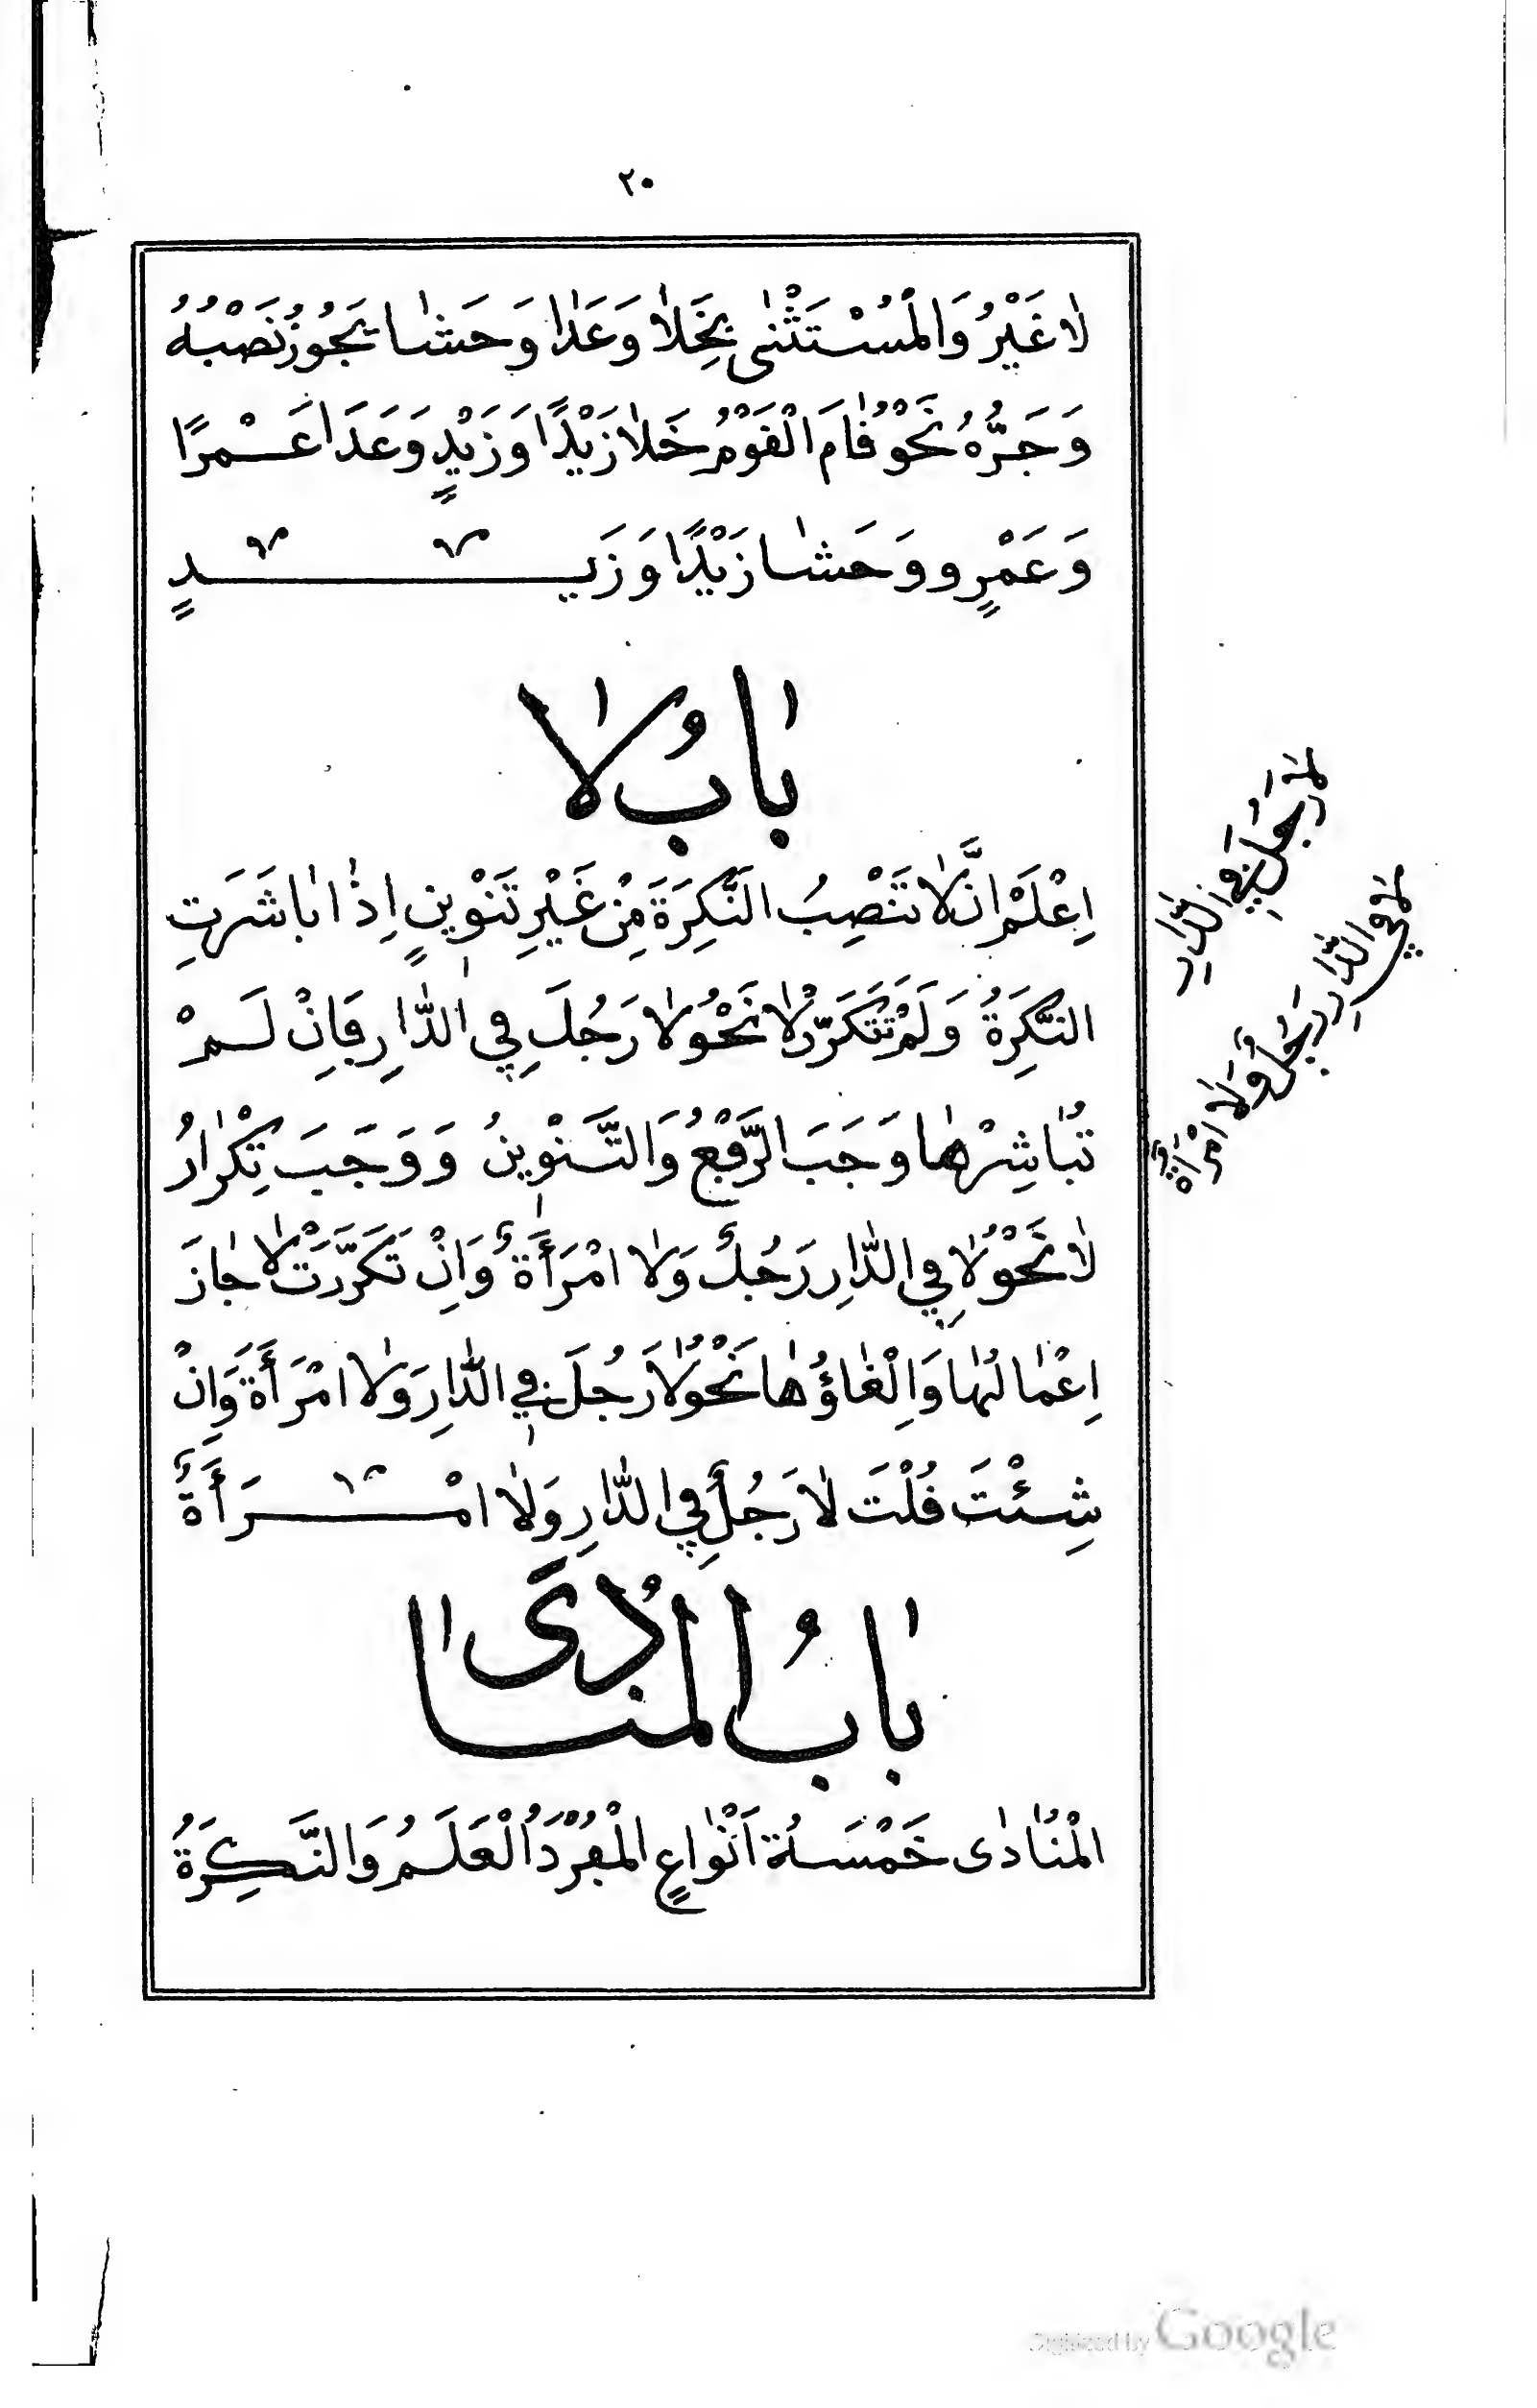 ٢٠
لَا غَيْرُ وَالْمُسْتَثْنٰى بِخَلَا وَعَدَا وَحَشَا يَجُوزُ نَصْبُهُ
وَجَرُّهُ نَحْوُ قَامَ الْقَوْمُ خَلَا زَيْدًا وَزَيْدٍ وَعَدَا عَمْرًا
وَعَمْرٍو وَحَشَا زَيْدًا وَزَيْدٍ
بَابُ لَا
اِعْلَمْ اَنَّ لَا تَنْصِبُ النَّكِرَةَ مِنْ غَيْرِ تَنْوِينٍ اِذَا بَاشَرَتِ
النَّكِرَةُ وَلَمْ تَتَكَرَّرْ لَا نَحْوُ لَا رَجُلَ فِي الدَّارِ فَاِنْ لَمْ
تُبَاشِرْهَا وَجَبَ الرَّفْعُ وَالتَّنْوِينُ وَوَجَبَ تِكْرَارُ
لَا نَحْوُ لَا فِي الدَّارِ رَجُلٌ وَلَا امْرَأَةٌ وَاِنْ تَكَرَّرَتْ لَا جَازَ
اِعْمَالُهَا وَاِلْغَاؤُهَا نَحْوُ لَا رَجُلَ فِي الدَّارِ وَلَا امْرَأَةَ وَاِنْ
شِئْتَ قُلْتَ لَا رَجُلٌ فِي الدَّارِ وَلَا امْرَأَةٌ
بَابُ الْمُنَادَى
الْمُنَادٰى خَمْسَةُ اَنْوَاعٍ الْمُفْرَدُ الْعَلَمُ وَالنَّكِرَةُ
لَا رَجُلَ فِي الدَّارِ
لَا فِي الدَّارِ رَجُلٌ وَلَا امْرَأَةٌ
Digitized by Google